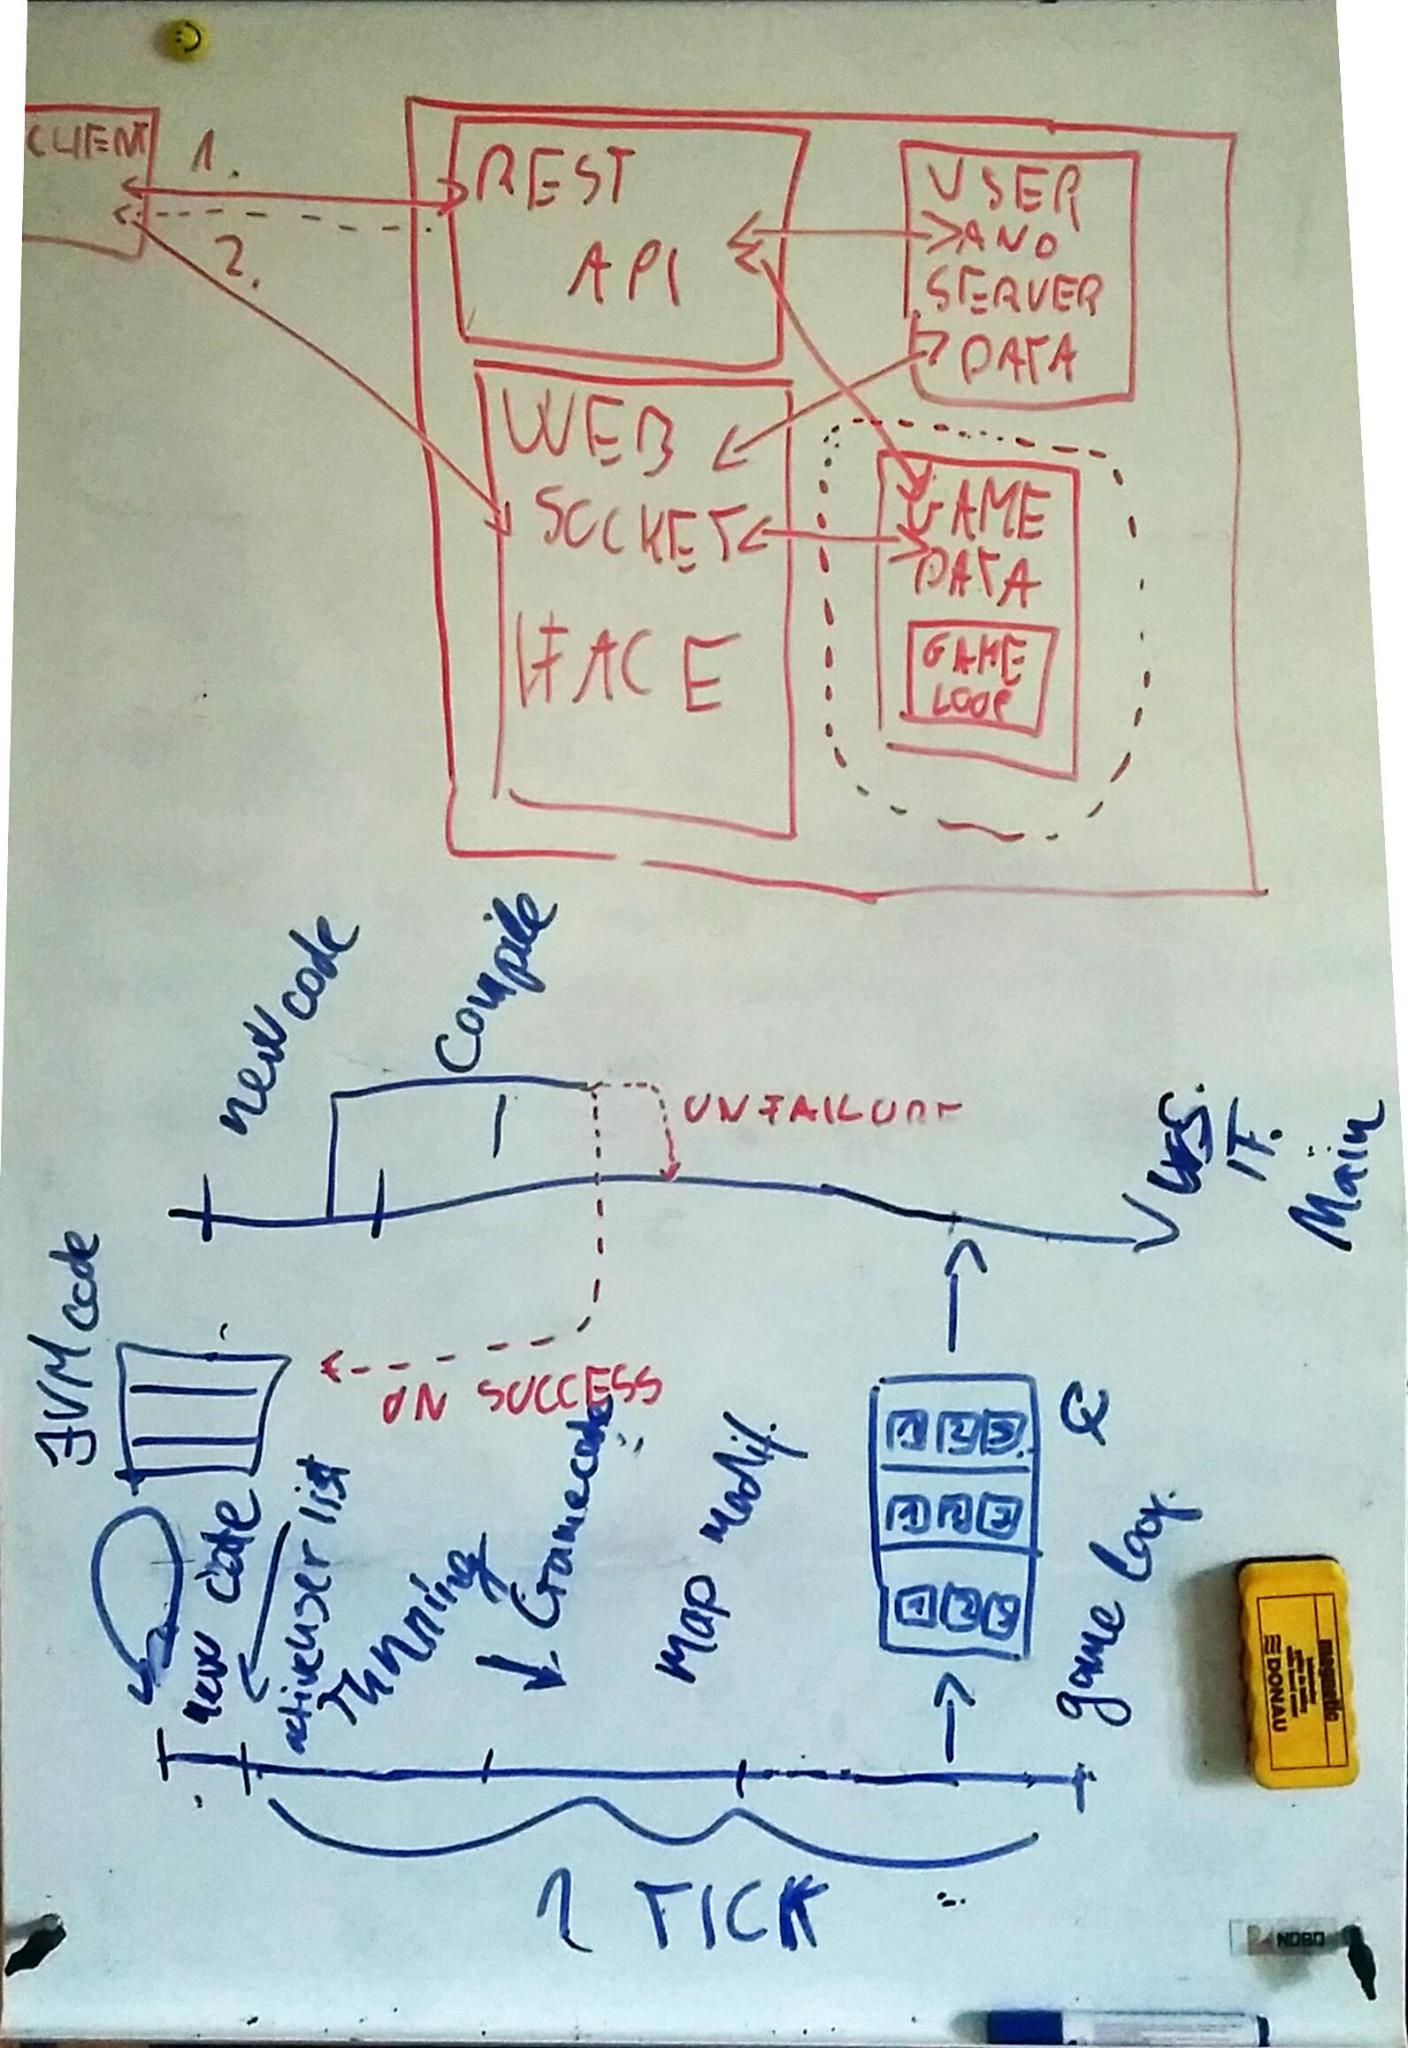 CLIENT
1.
2.
REST
API
USER
AND
SERVER
DATA
WEB
SOCKET
IFACE
GAME
DATA
GAME
LOOP
new code
Compile
ON FAILURE
IT.
Main
JVM code
ON SUCCESS
new code
active user list
running
Gamecode
Map modif.
1 2 3
1 2 3
1 2 3
Q
game loop
1 TICK
magnetic
DONAU
NOBO